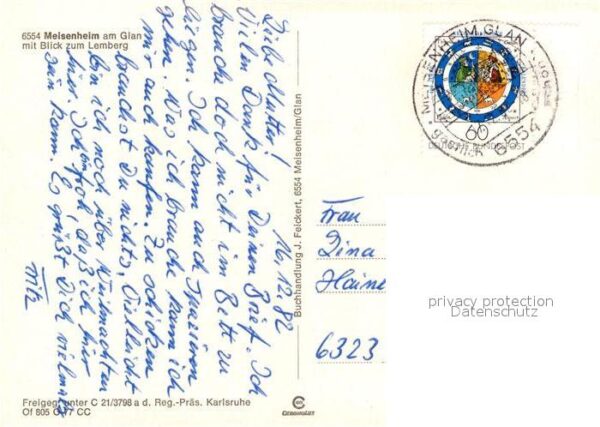 6554 Meisenheim am Glan
mit Blick zum Lemberg
16.12.82
Liebe Mutter!
Vielen Dank für Deinen Brief. Ich
brauche doch nicht im Bett zu
liegen. Ich kann auch spazieren
gehen. Was ich brauche kann ich
mir auch kaufen. Zu schicken
brauchst Du nichts. Vielleicht
bin ich noch über Weihnachten
hier. Ich bin froh, daß ich hier
sein kann. Es grüßt Dich vielmals
Fritz
Buchhandlung J. Feickert, 6554 Meisenheim/Glan
MEISENHEIM, GLAN
60
6554
Frau
Dina
Haine
6323
privacy protection
Datenschutz
Freigeg. unter C 21/3798 a d. Reg.-Präs. Karlsruhe
Of 805 C/7 CC
CEKUMDRUCK